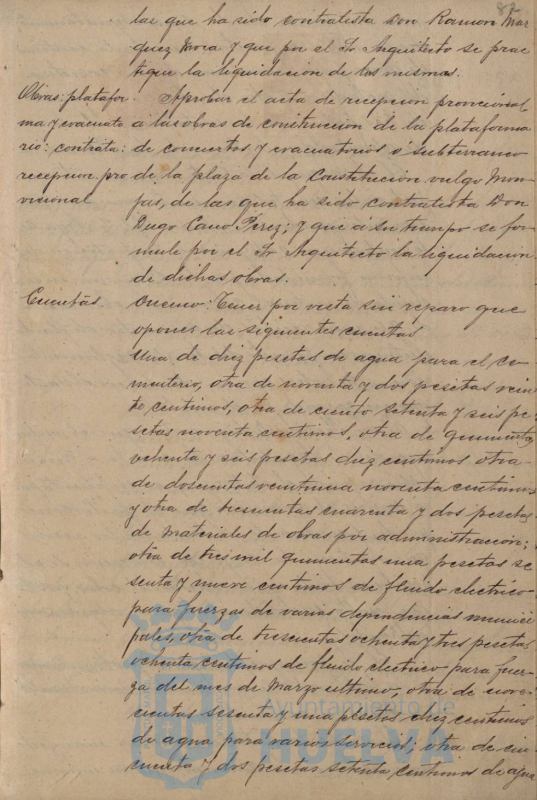 82
las que ha sido contratista Don Ramon Mar
quez Mora y que por el Sr Arquitecto se prac
tique la liquidacion de las mismas.
Obras: platafor
ma y evacuato
rio: contrata:
recepcion pro
visional
Aprobar el acta de recepcion provisional
a las obras de construcion de la plataforma
de conciertos y evacuatorios ó subterraneo
de la plaza de la Constitucion vulgo Mon
jas, de las que ha sido contratista Don
Diego Cano Perez; y que á su tiempo se for
mule por el Sr Arquitecto la liquidacion
de dichas obras.
Cuentas.
Onceno: Tener por vista sin reparo que
oponer las siguientes cuentas
Una de diez pesetas de agua para el ce
menterio, otra de noventa y dos pesetas vein
te centimos, otra de ciento setenta y seis pe
setas noventa centimos, otra de quinientas
ochenta y seis pesetas diez centimos otra
de doscientas veintiuna noventa centimos
y otra de trescientas cuarenta y dos pesetas
de materiales de obras por administracion;
otra de tres mil quinientas una pesetas se
senta y nueve centimos de fluido electrico
para fuerzas de varias dependencias munici
pales, otra de trescientas ochenta y tres pesetas
ochenta centimos de fluido electrico para fuer
za del mes de Marzo ultimo, otra de nove
cientas sesenta y una pesetas diez centimos
de agua para varios servicios; otra de cin
cuenta y dos pesetas setenta centimos de agua
Ayuntamiento de
HUELVA